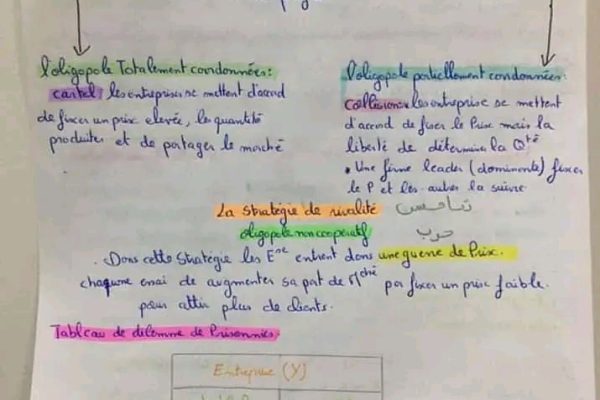 l'oligopole Totalement coordonnées:
cartel: les entreprises se mettent d'accord
de fixer un prix elevée, les quantité
produites et de partager le marché
l'oligopole partiellement cordonnées:
Collusion: les entreprise se mettent
d'accord de fixer le Prix mais la
liberté de déterminer la Qté
• Une firme leader (dominante) fixer
le P et les autres la suivre
La stratégie de rivalité تنافس
oligopole non cooperatif حرب
. Dans cette stratégie les Ese entrent dans une guerre de Prix.
chaqune essai de augmenter sa part de Mché par fixer un prix faible.
pour attir plus de clients.
Tableau de dilemme de Prisonniers
Entreprise (Y)